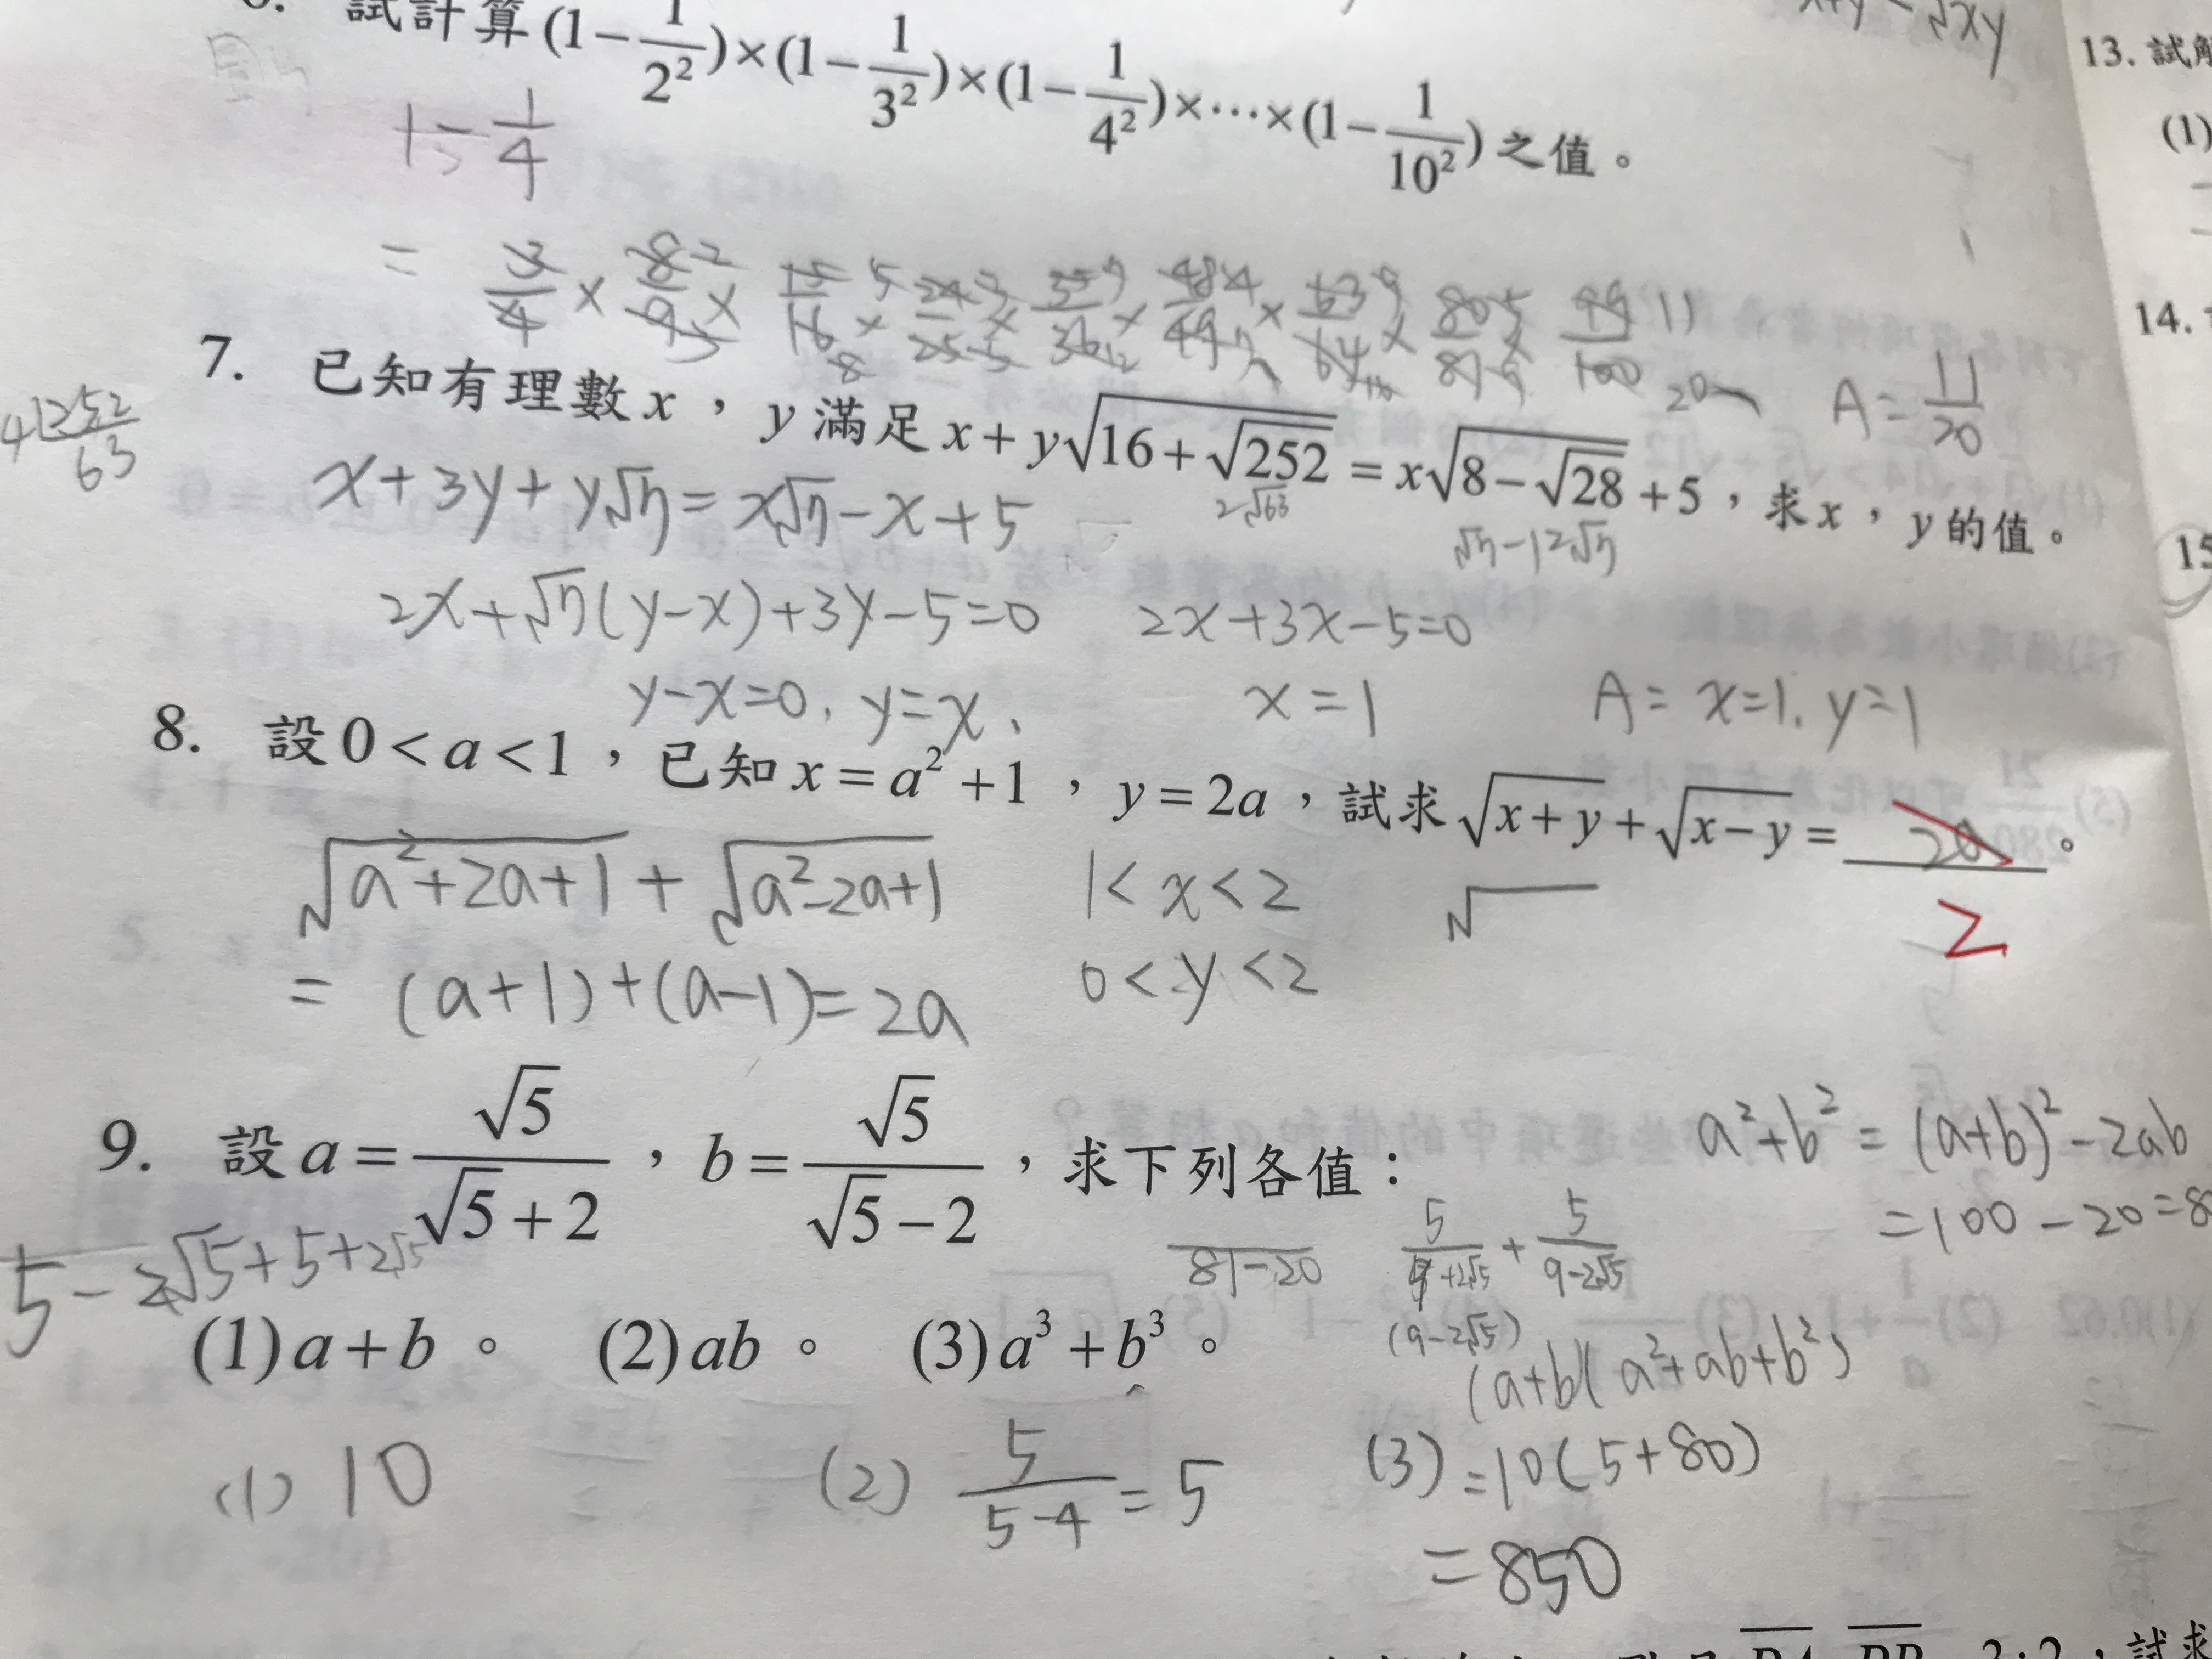 試計算(1−1/2²)×(1−1/3²)×(1−1/4²)×⋯×(1−1/10²)之值。
1−1/4
= 3/4 × 8/9 × 15/16 × 24/25 × 35/36 × 48/49 × 63/64 × 80/81 × 99/100
A = 11/20
7. 已知有理數x,y滿足x+y√(16+√252)=x√(8−√28)+5,求x,y的值。
4 252
63
2√63
√7−1 2√7
x+3y+y√7=x√7−x+5
2x+√7(y−x)+3y−5=0 2x+3x−5=0
y−x=0, y=x, x=1 A= x=1, y=1
8. 設0<a<1,已知x=a²+1,y=2a,試求√(x+y)+√(x−y)= 2a 。
2
√(a²+2a+1)+√(a²−2a+1) 1<x<2 √
=(a+1)+(a−1)=2a 0<y<2
9. 設a=√5/(√5+2),b=√5/(√5−2),求下列各值:
a²+b²=(a+b)²−2ab
=100−20=8
5−2√5+5+2√5
81−20
5/(9+2√5)+5/(9−2√5)
(9−2√5)
(1)a+b。 (2)ab。 (3)a³+b³。
(a+b)(a²+ab+b²)
(1) 10 (2) 5/(5−4)=5 (3) =10(5+80)
=850
13. 試解
(1)
14.
15